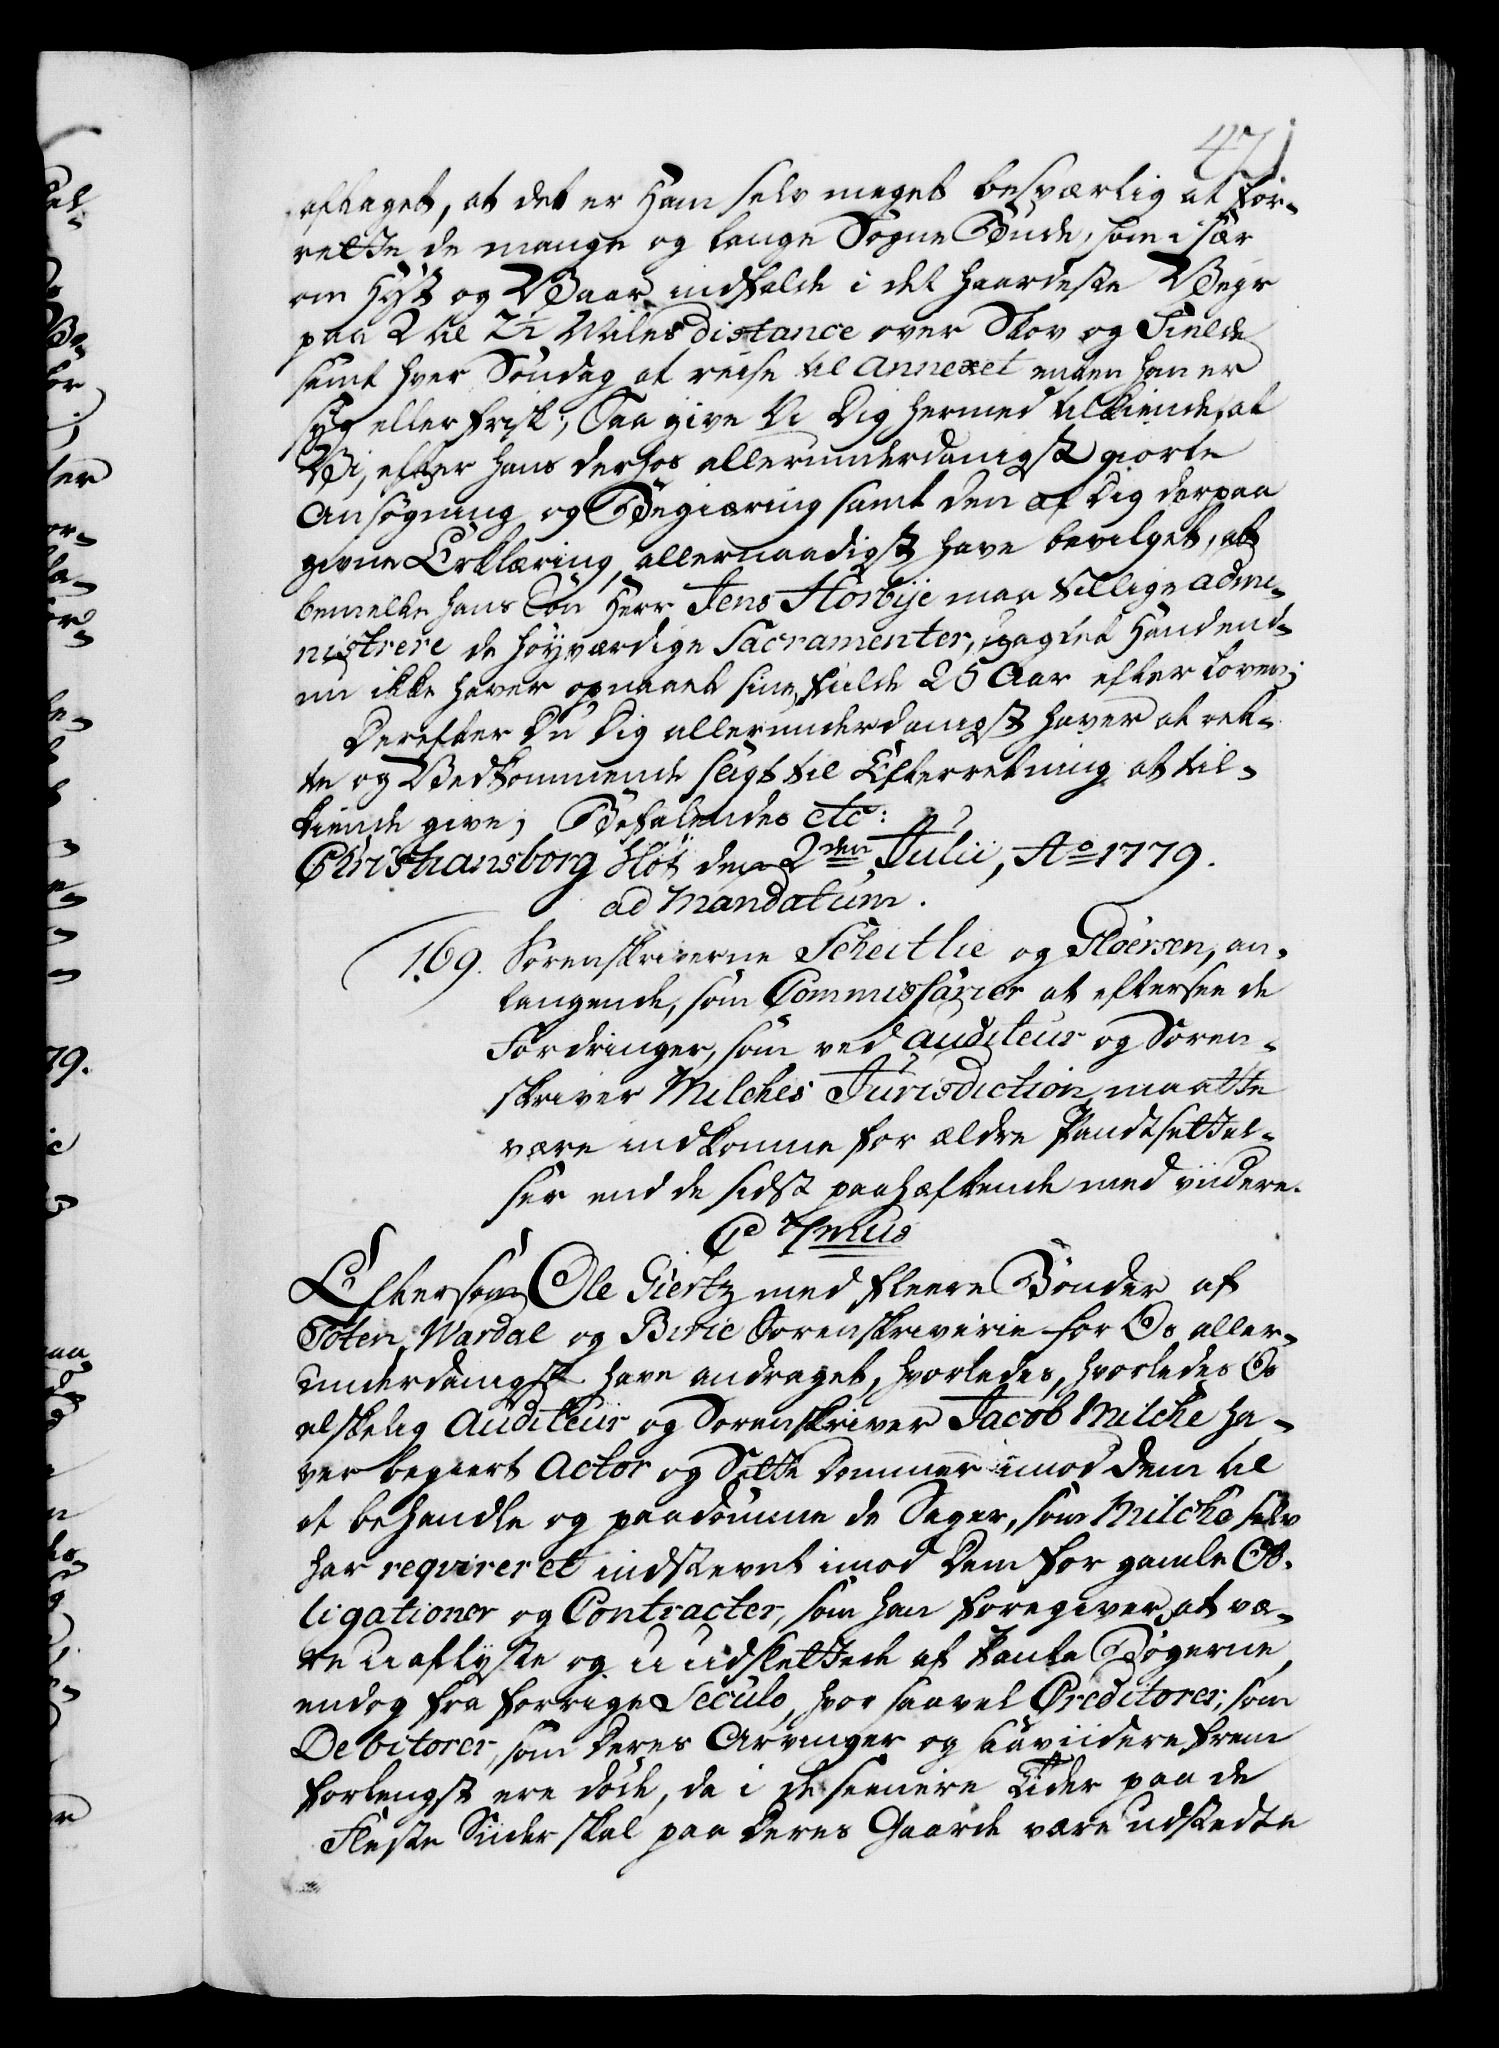 471
aftaget, at det er Ham selv meget besværlig at for-
rette de mange og lange Sogne Bude, som især
om Høst og Vaar indfalde i det haardeste Vejr
paa 2 til 2½ Miiles distance over Skov og Fielde
samt hver Søndag at reise til Annexet enten han er
syg eller frisk; Saa give Vi Dig hermed tilkiende, at
Vi, efter hans derhos allerunderdanigst giorte
Ansøgning og Begiæring samt den af Dig derpaa
givne Erklæring, allernaadigst have bevilget, at
bemelte hans Søn Herr Jens Hørbÿe maa tillige admi-
nistrere de høyværdige Sacramenter, uagtet Hand end-
nu ikke haver opnaaet sine fulde 25 Aar efter Loven;
Derefter Du Dig allerunderdanigst haver at ret-
te og Vedkommende sligt til Efterretning at til-
kiende give; Befalendes etc:
Christiansborg Slot den 2den Julii, Ao 1779.
ad Mandatum.
169. Sorenskriverne Scheitlie og Fløersen, an-
langende, som Commissarier at eftersee de
Fordringer, som ved Auditeur og Soren-
skriver Milches Jurisdiction maatte
være indkomne for ældre Pandtsettel-
ser end de sidst paahæftende med viidere.
C 7mus
Eftersom Ole Giertz med fleere Bønder af
Toten, Wardal og Birie Sorenskriverie for Os aller-
underdanigst have andraget, hvorledes, hvorledes Os
elskelig Auditeur og Sorenskriver Jacob Milche ha-
ver begiert Actor og Sætte Dommer imod dem til
at behandle og paadømme de Sager, som Milche selv
har requireret indstevnt imod Dem for gamle Ob-
ligationer og Contracter, som han foregiver, at væ-
re uaflyste og uudslettede af Pante Bøgerne,
endog fra forrige Seculo, hvor saavel Creditorer, som
Debitorer, som deres Arvinger og saa viidere frem
forlengst ere døde, da i de seenere Tider paa de
Fleste Stæder skal paa deres Gaarde være udstedte